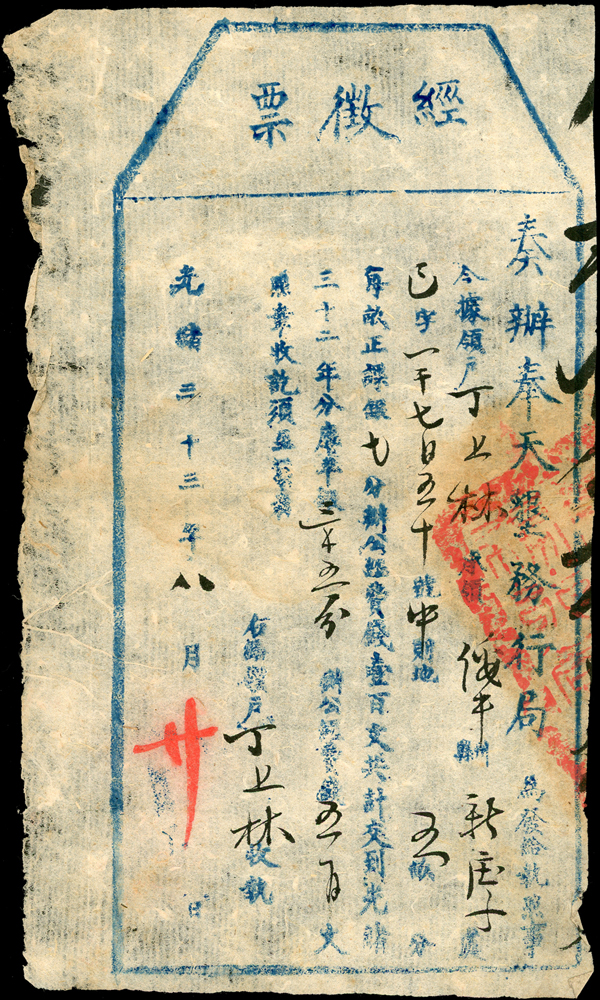 經徵票
奏辦奉天墾務行局爲發給執照事
今據領戶丁上林承領州縣新庄子處
字一千七百五十號中則地五畝分
每畝正課銀七分辦公經費錢壹百文共計交到光緒
三十二年分庫平銀三錢五分辦公經費錢五百文
照章收訖須至執照者
右給領戶丁上林收執
光緒三十三年八月廿日